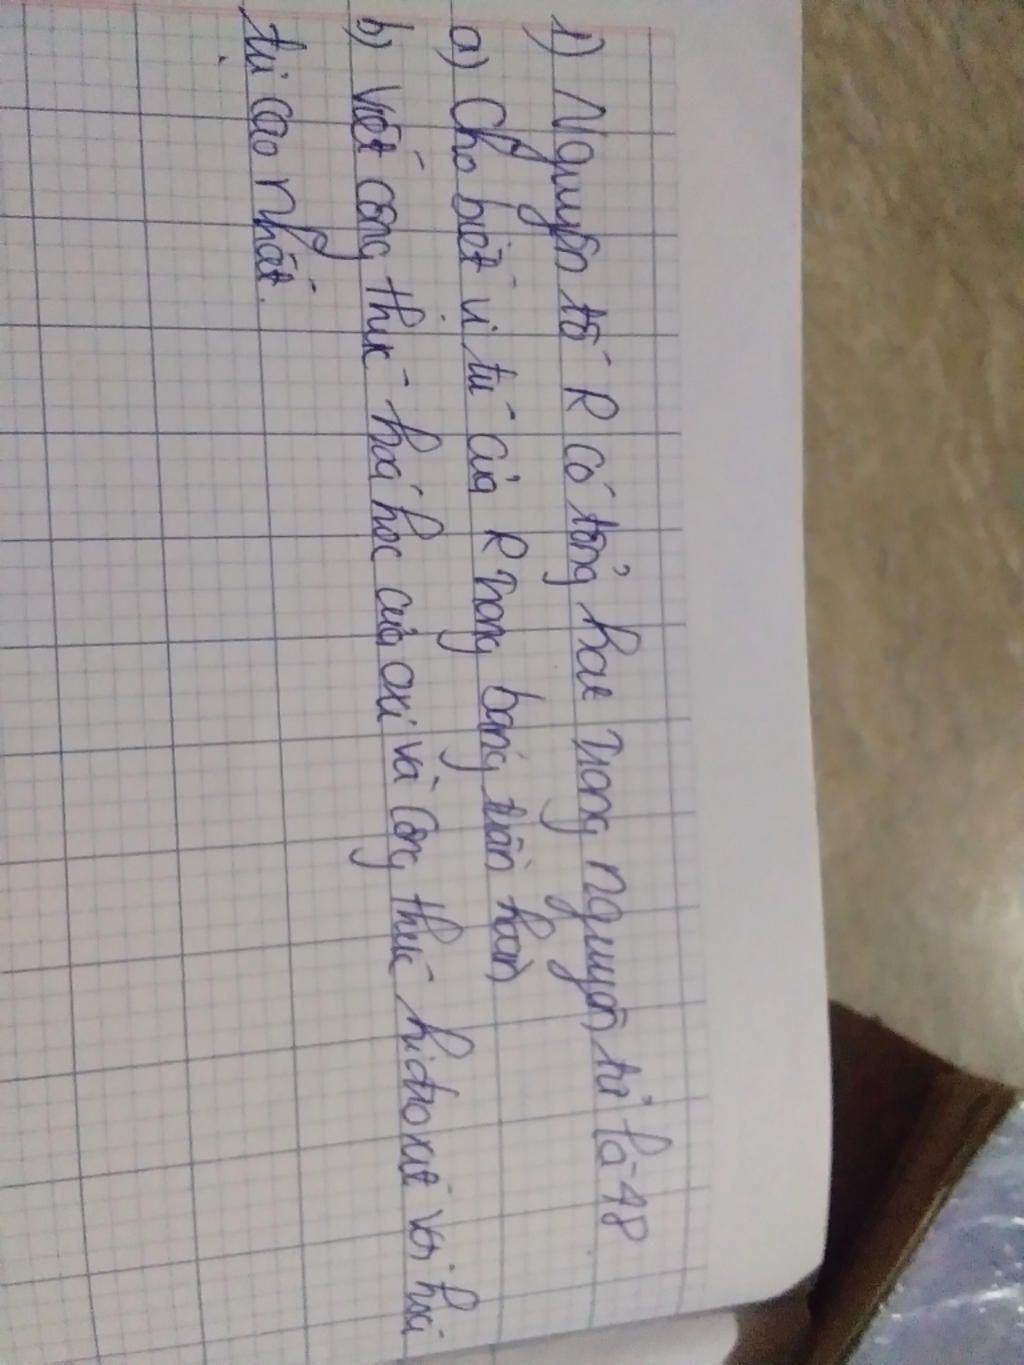 1) Nguyên tố R có tổng hạt trong nguyên tử là 48
a) Cho biết vị trí của R trong bảng tuần hoàn
b) Viết công thức hoá học của oxi và công thức hidroxit với hoá
trị cao nhất.